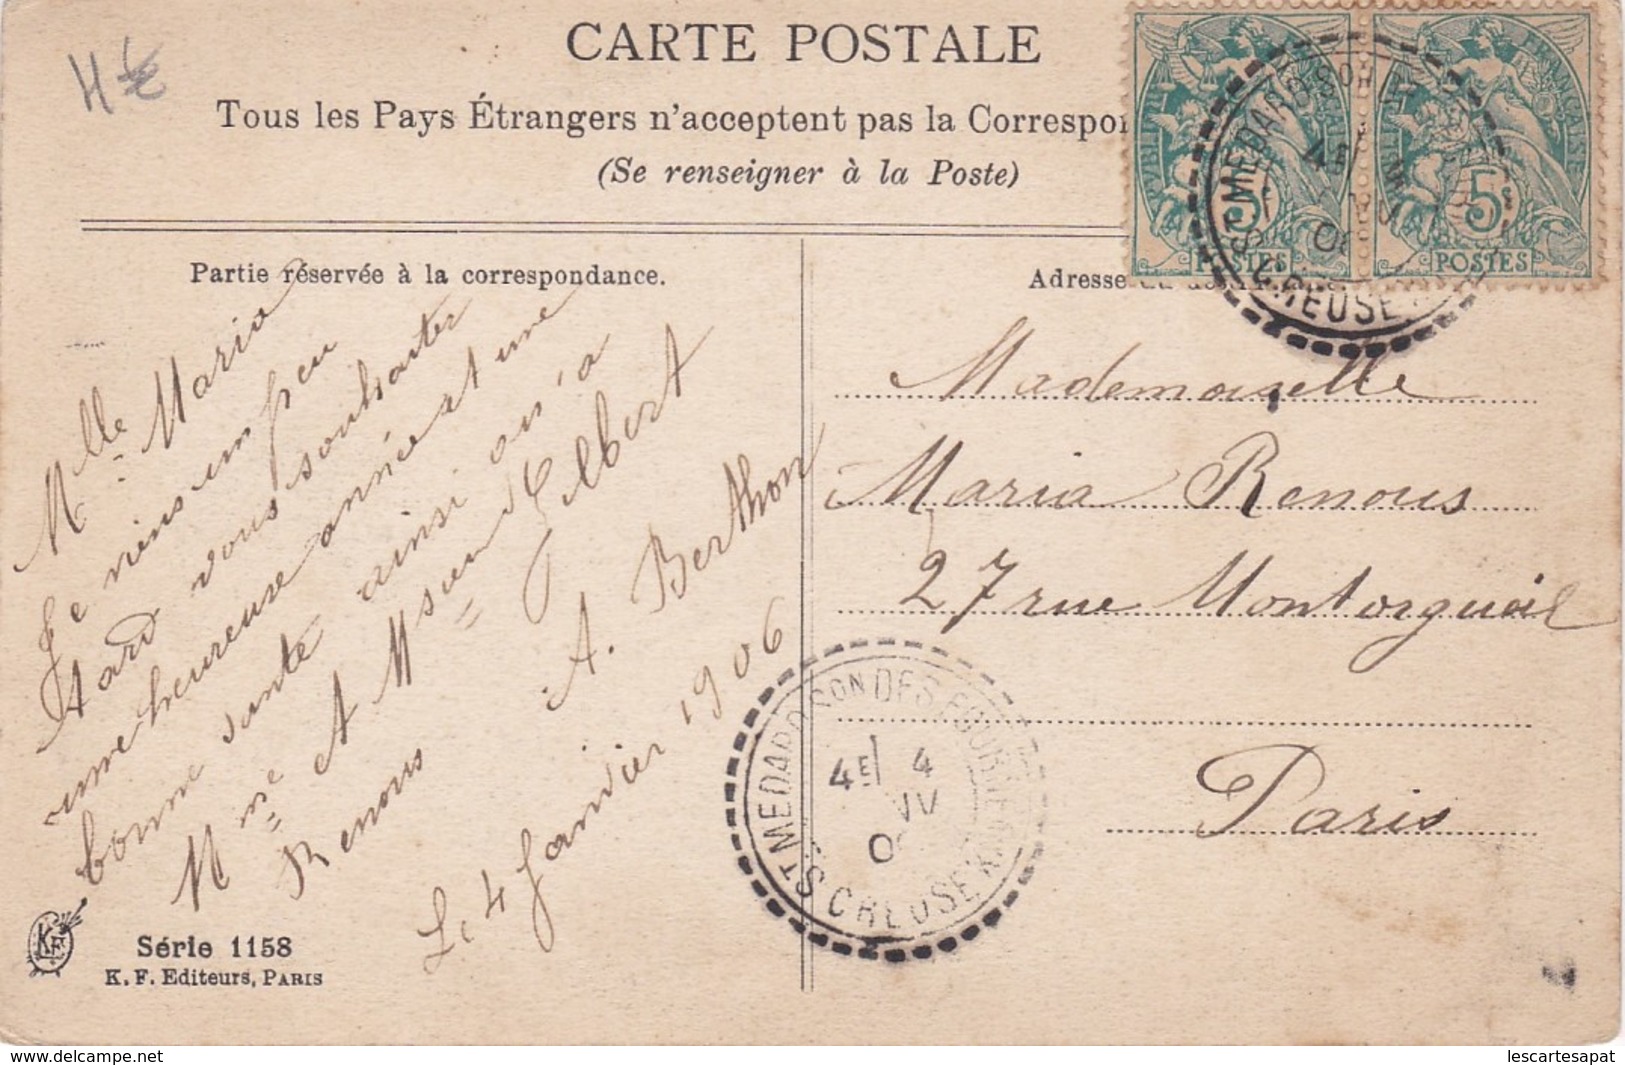 CARTE POSTALE
Tous les Pays Étrangers n'acceptent pas la Correspon
(Se renseigner à la Poste)
Partie réservée à la correspondance.
Adresse
Mlle Maria
Je viens un peu
tard vous souhaiter
une heureuse année et une
bonne santé ainsi qu'à
Mme et Msieur Gilbert
Renous
A. Berthon
Le 4 Janvier 1906
Série 1158
K. F. Editeurs, PARIS
KF
Mademoiselle
Maria Renous
27 rue Montorgueil
Paris
RÉPUBLIQUE FRANÇAISE
5c
POSTES
5c
POSTES
ST MEDARD
CREUSE
4E
ST MEDARD
CREUSE
4E 4
www.delcampe.net
lescartesapat